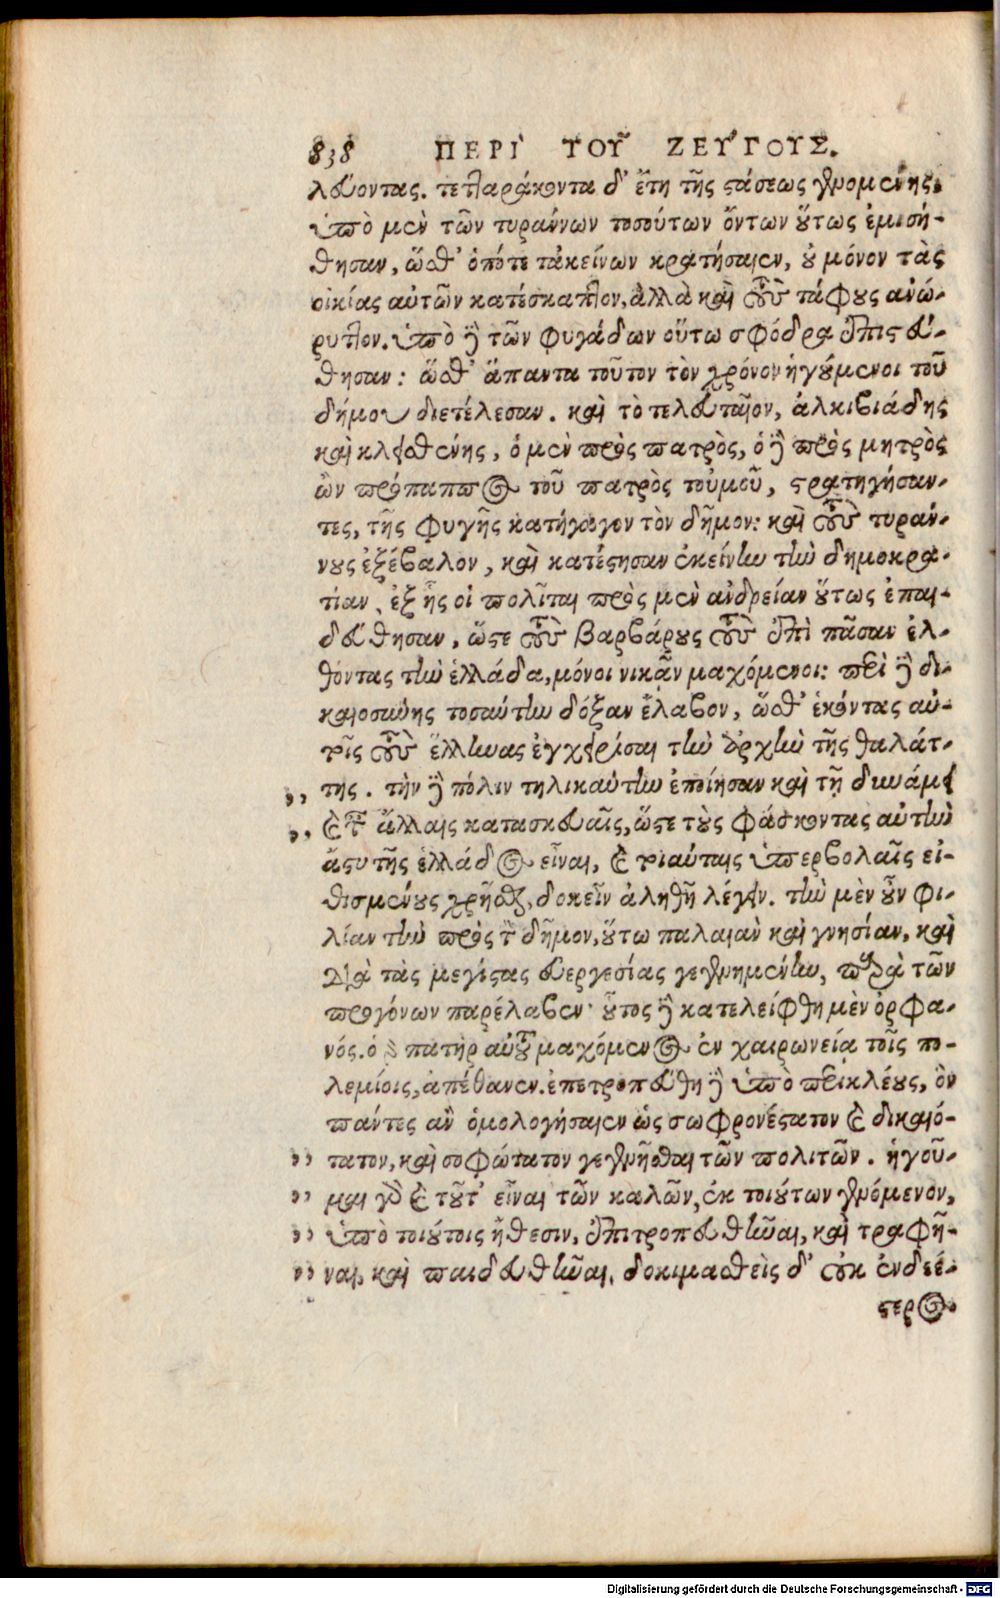 838 ΠΕΡῚ ΤΟΥ͂ ΖΕΎΓΟΥΣ.
λεύοντας. τετταράκοντα δ' ἔτη τῆς στάσεως γενομένης,
ὑπὸ μὲν τῶν τυράννων τοσούτων ὄντων οὕτως ἐμισή-
θησαν, ὥσθ' ὁπότε τἀκείνων κρατήσαιεν, οὐ μόνον τὰς
οἰκίας αὐτῶν κατέσκαπτον, ἀλλὰ καὶ τοὺς τάφους ἀνώ-
ρυττον. ὑπὸ δὲ τῶν φυγάδων οὕτω σφόδρα ἐπιστεύ-
θησαν: ὥσθ' ἅπαντα τοῦτον τὸν χρόνον ἡγούμενοι τοῦ
δήμου διετέλεσαν. καὶ τὸ τελευταῖον, ἀλκιβιάδης
καὶ κλεισθένης, ὁ μὲν πρὸς πατρὸς, ὁ δὲ πρὸς μητρὸς
ὢν πρόπαππος τοῦ πατρὸς τοὐμοῦ, στρατηγήσαν-
τες, τῆς φυγῆς κατήγαγον τὸν δῆμον: καὶ τοὺς τυράν-
νους ἐξέβαλον, καὶ κατέστησαν ἐκείνην τὴν δημοκρα-
τίαν, ἐξ ἧς οἱ πολῖται πρὸς μὲν ἀνδρείαν οὕτως ἐπαι-
δεύθησαν, ὥστε τοὺς βαρβάρους τοὺς ἐπὶ πᾶσαν ἐλ-
θόντας τὴν ἑλλάδα, μόνοι νικᾶν μαχόμενοι: περὶ δὲ δι-
καιοσύνης τοσαύτην δόξαν ἔλαβον, ὥσθ' ἑκόντας αὐ-
τοῖς τοὺς ἕλληνας ἐγχειρίσαι τὴν ἀρχὴν τῆς θαλάτ-
,, της. τὴν δὲ πόλιν τηλικαύτην ἐποίησαν καὶ τῇ δυνάμει
,, καὶ ταῖς ἄλλαις κατασκευαῖς, ὥστε τοὺς φάσκοντας αὐτὴν
ἄστυ τῆς ἑλλάδος εἶναι, καὶ τοιαύταις ὑπερβολαῖς εἰ-
θισμένους χρῆσθαι, δοκεῖν ἀληθῆ λέγειν. τὴν μὲν οὖν φι-
λίαν τὴν πρὸς τὸν δῆμον, οὕτω παλαιὰν καὶ γνησίαν, καὶ
διὰ τὰς μεγίστας εὐεργεσίας γεγενημένην, παρὰ τῶν
προγόνων παρέλαβεν· οὗτος δὲ κατελείφθη μὲν ὀρφα-
νός. ὁ γὰρ πατὴρ αὐτοῦ μαχόμενος ἐν χαιρωνείᾳ τοῖς πο-
λεμίοις, ἀπέθανεν. ἐπετροπεύθη δὲ ὑπὸ περικλέους, ὃν
πάντες ἂν ὁμολογήσαιεν ὡς σωφρονέστατον καὶ δικαιό-
,, τατον, καὶ σοφώτατον γεγενῆσθαι τῶν πολιτῶν. ἡγοῦ-
,, μαι γὰρ καὶ τοῦτ' εἶναι τῶν καλῶν, ἐκ τοιούτων γενόμενον,
,, ὑπὸ τοιούτοις ἤθεσιν, ἐπιτροπευθῆναι, καὶ τραφῆ-
,, ναι, καὶ παιδευθῆναι, δοκιμασθεὶς δ' οὐκ ἐνδεέ-
στερος.
Digitalisierung gefördert durch die Deutsche Forschungsgemeinschaft - DFG